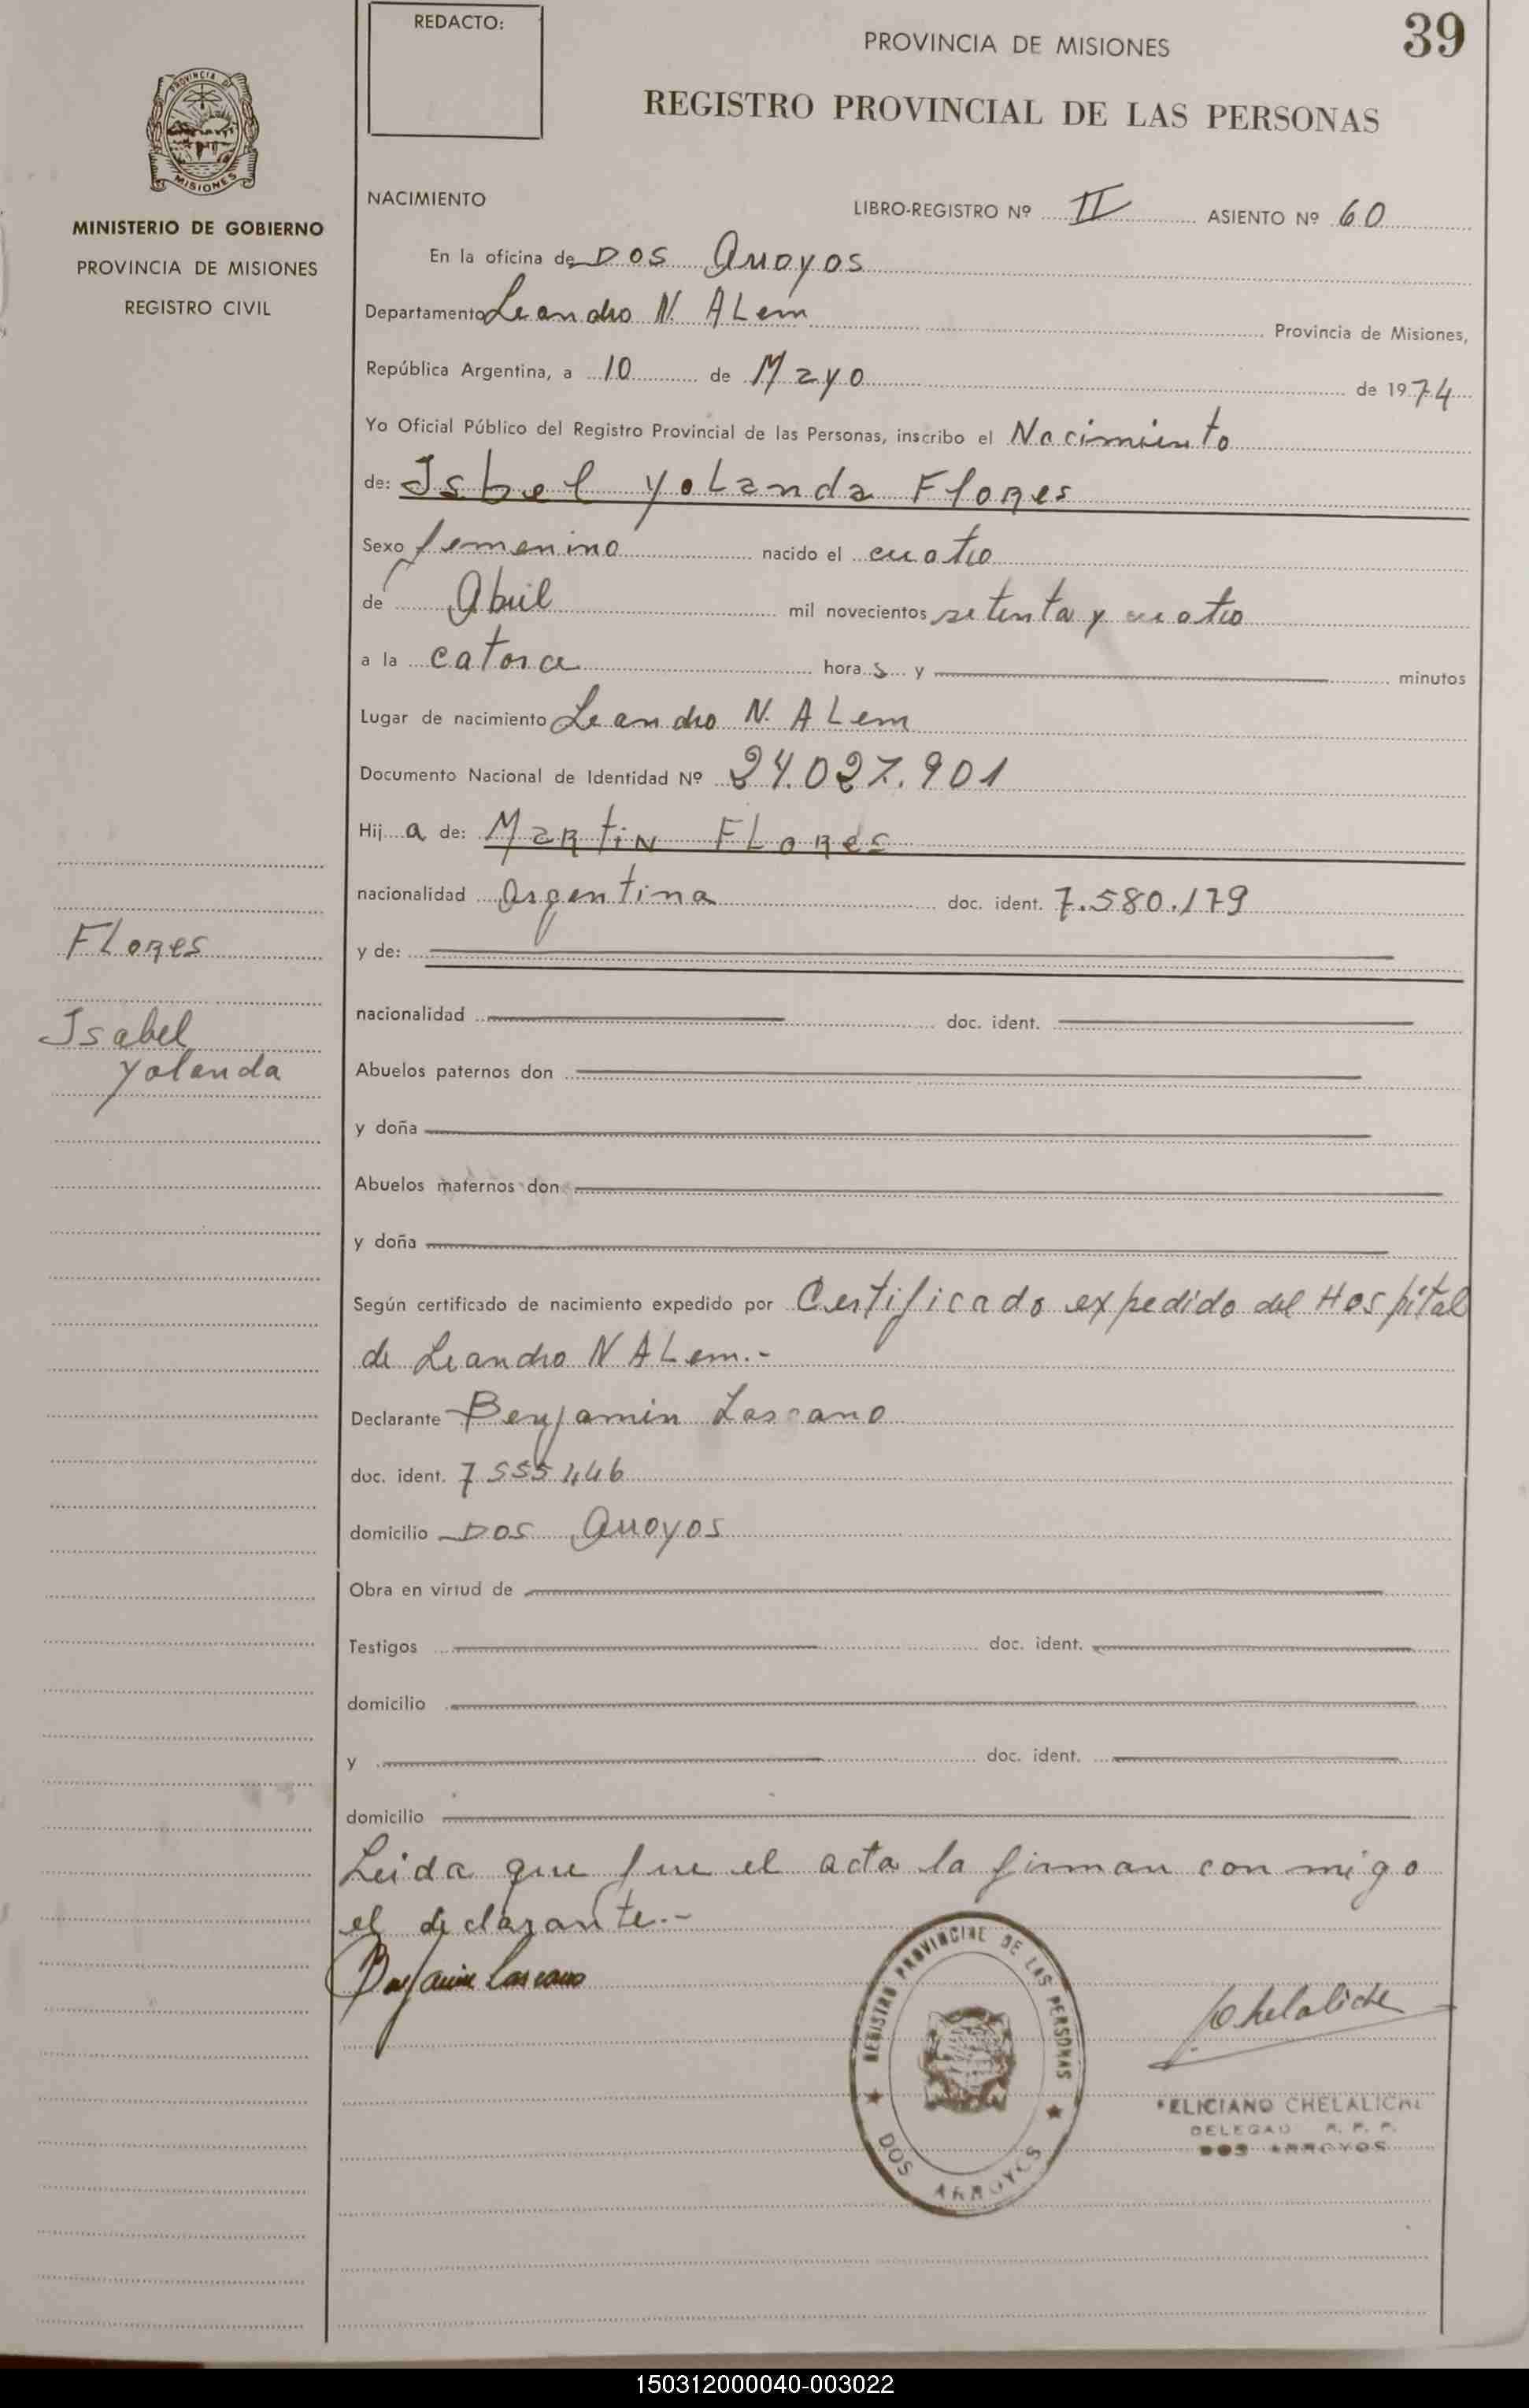 REDACTO:
PROVINCIA DE MISIONES
39
REGISTRO PROVINCIAL DE LAS PERSONAS
PROVINCIA DE
MISIONES
MINISTERIO DE GOBIERNO
PROVINCIA DE MISIONES
REGISTRO CIVIL
NACIMIENTO
LIBRO-REGISTRO Nº II ASIENTO Nº 60
En la oficina de Dos Arroyos
Departamento Leandro N. ALem Provincia de Misiones,
República Argentina, a 10 de Mayo de 1974
Yo Oficial Público del Registro Provincial de las Personas, inscribo el Nacimiento
de: Isbel yoLanda Flores
Sexo femenino nacido el cuatro
de Abril mil novecientos setenta y cuatro
a la catorce hora s y minutos
Lugar de nacimiento Leandro N. ALem
Documento Nacional de Identidad Nº 24.027.901
Hij a de: Martin FLores
nacionalidad Argentina doc. ident. 7.580.179
y de:
nacionalidad doc. ident.
Abuelos paternos don
y doña
Abuelos maternos don
y doña
Según certificado de nacimiento expedido por Certificado expedido del Hospital
de Leandro N ALem.-
Declarante Benjamin Lascano
doc. ident. 7555446
domicilio Dos Arroyos
Obra en virtud de
Testigos doc. ident.
domicilio
y doc. ident.
domicilio
Leida que fue el acta la firman con migo
el declarante.-
Benjamin Lascano
Flores
Isabel
yolanda
REGISTRO PROVINCIAL DE LAS PERSONAS
DOS ARROYOS
Chelaliche
FELICIANO CHELALICHE
DELEGADO R. P. P.
DOS ARROYOS
150312000040-003022